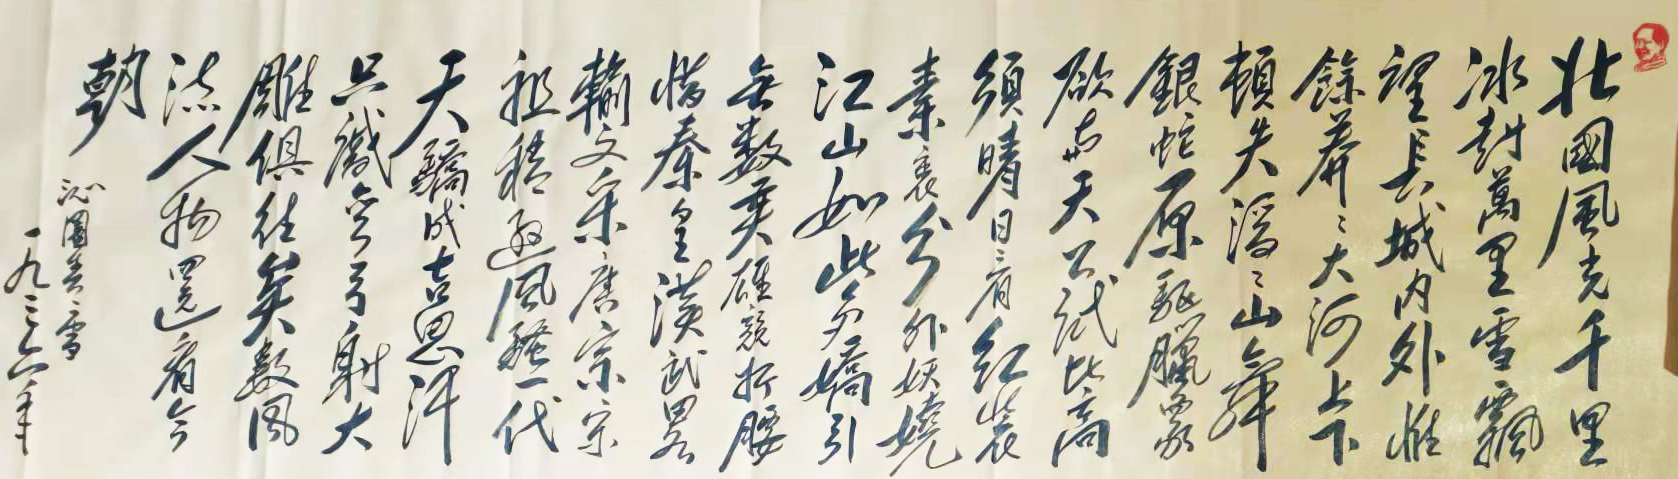 北國風光千里
冰封萬里雪飄
望長城內外惟
餘莽〻大河上下
頓失滔〻山舞
銀蛇原馳臘象
欲与天公試比高
須晴日看紅裝
素裹分外妖嬈
江山如此多嬌引
無数英雄競折腰
惜秦皇漢武畧
輸文采唐宗宋
祖稍遜風騷一代
天驕成吉思汗
只識彎弓射大
雕俱往矣数風
流人物還看今
朝
沁園春雪
一九三六年